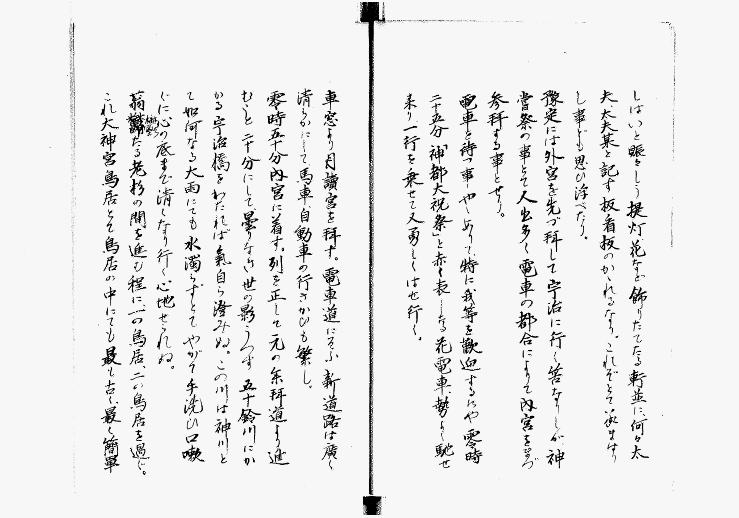 しはいと賑をしう提灯花など飾りたてたる軒並に、何々太
夫、太夫某と記す板看板のかゝれるなり。これぞとて
し事ども思ひ浮べたり。
豫定には外宮を先づ拜して宇治に行く筈なりしが神
嘗祭の事とて人出多く電車の都合によりて內宮をまづ
參拜する事とせり。
電車を待つ事やゝありて特に我等を歡迎するにや零時
二十五分「神都大祝祭」と赤く表しなる花電車、勢よく馳せ
來り一行を乘せて又勇しくはせ行く。
車窓より月讀宮を拜す。電車道にそふ新道路は廣く
清らかにして馬車自動車の行きかひも繁し。
零時五十分內宮に着す。列を正して一の奈拜道より進
むこと二十分にして曇りなき世の影うつす五十鈴川にか
かる宇治橋をわたれば氣自ら澄みぬ。この川は神川と
て如何なる大雨にても水濁らずとてやがて手洗ひ口嗽
ぐに心の底まで清くなり行く心地せられぬ。
たる老杉の間を進む程に、一の鳥居、二の鳥居を過ぐ。
これ大神宮鳥居とて鳥居の中にても最も古く、最も簡單